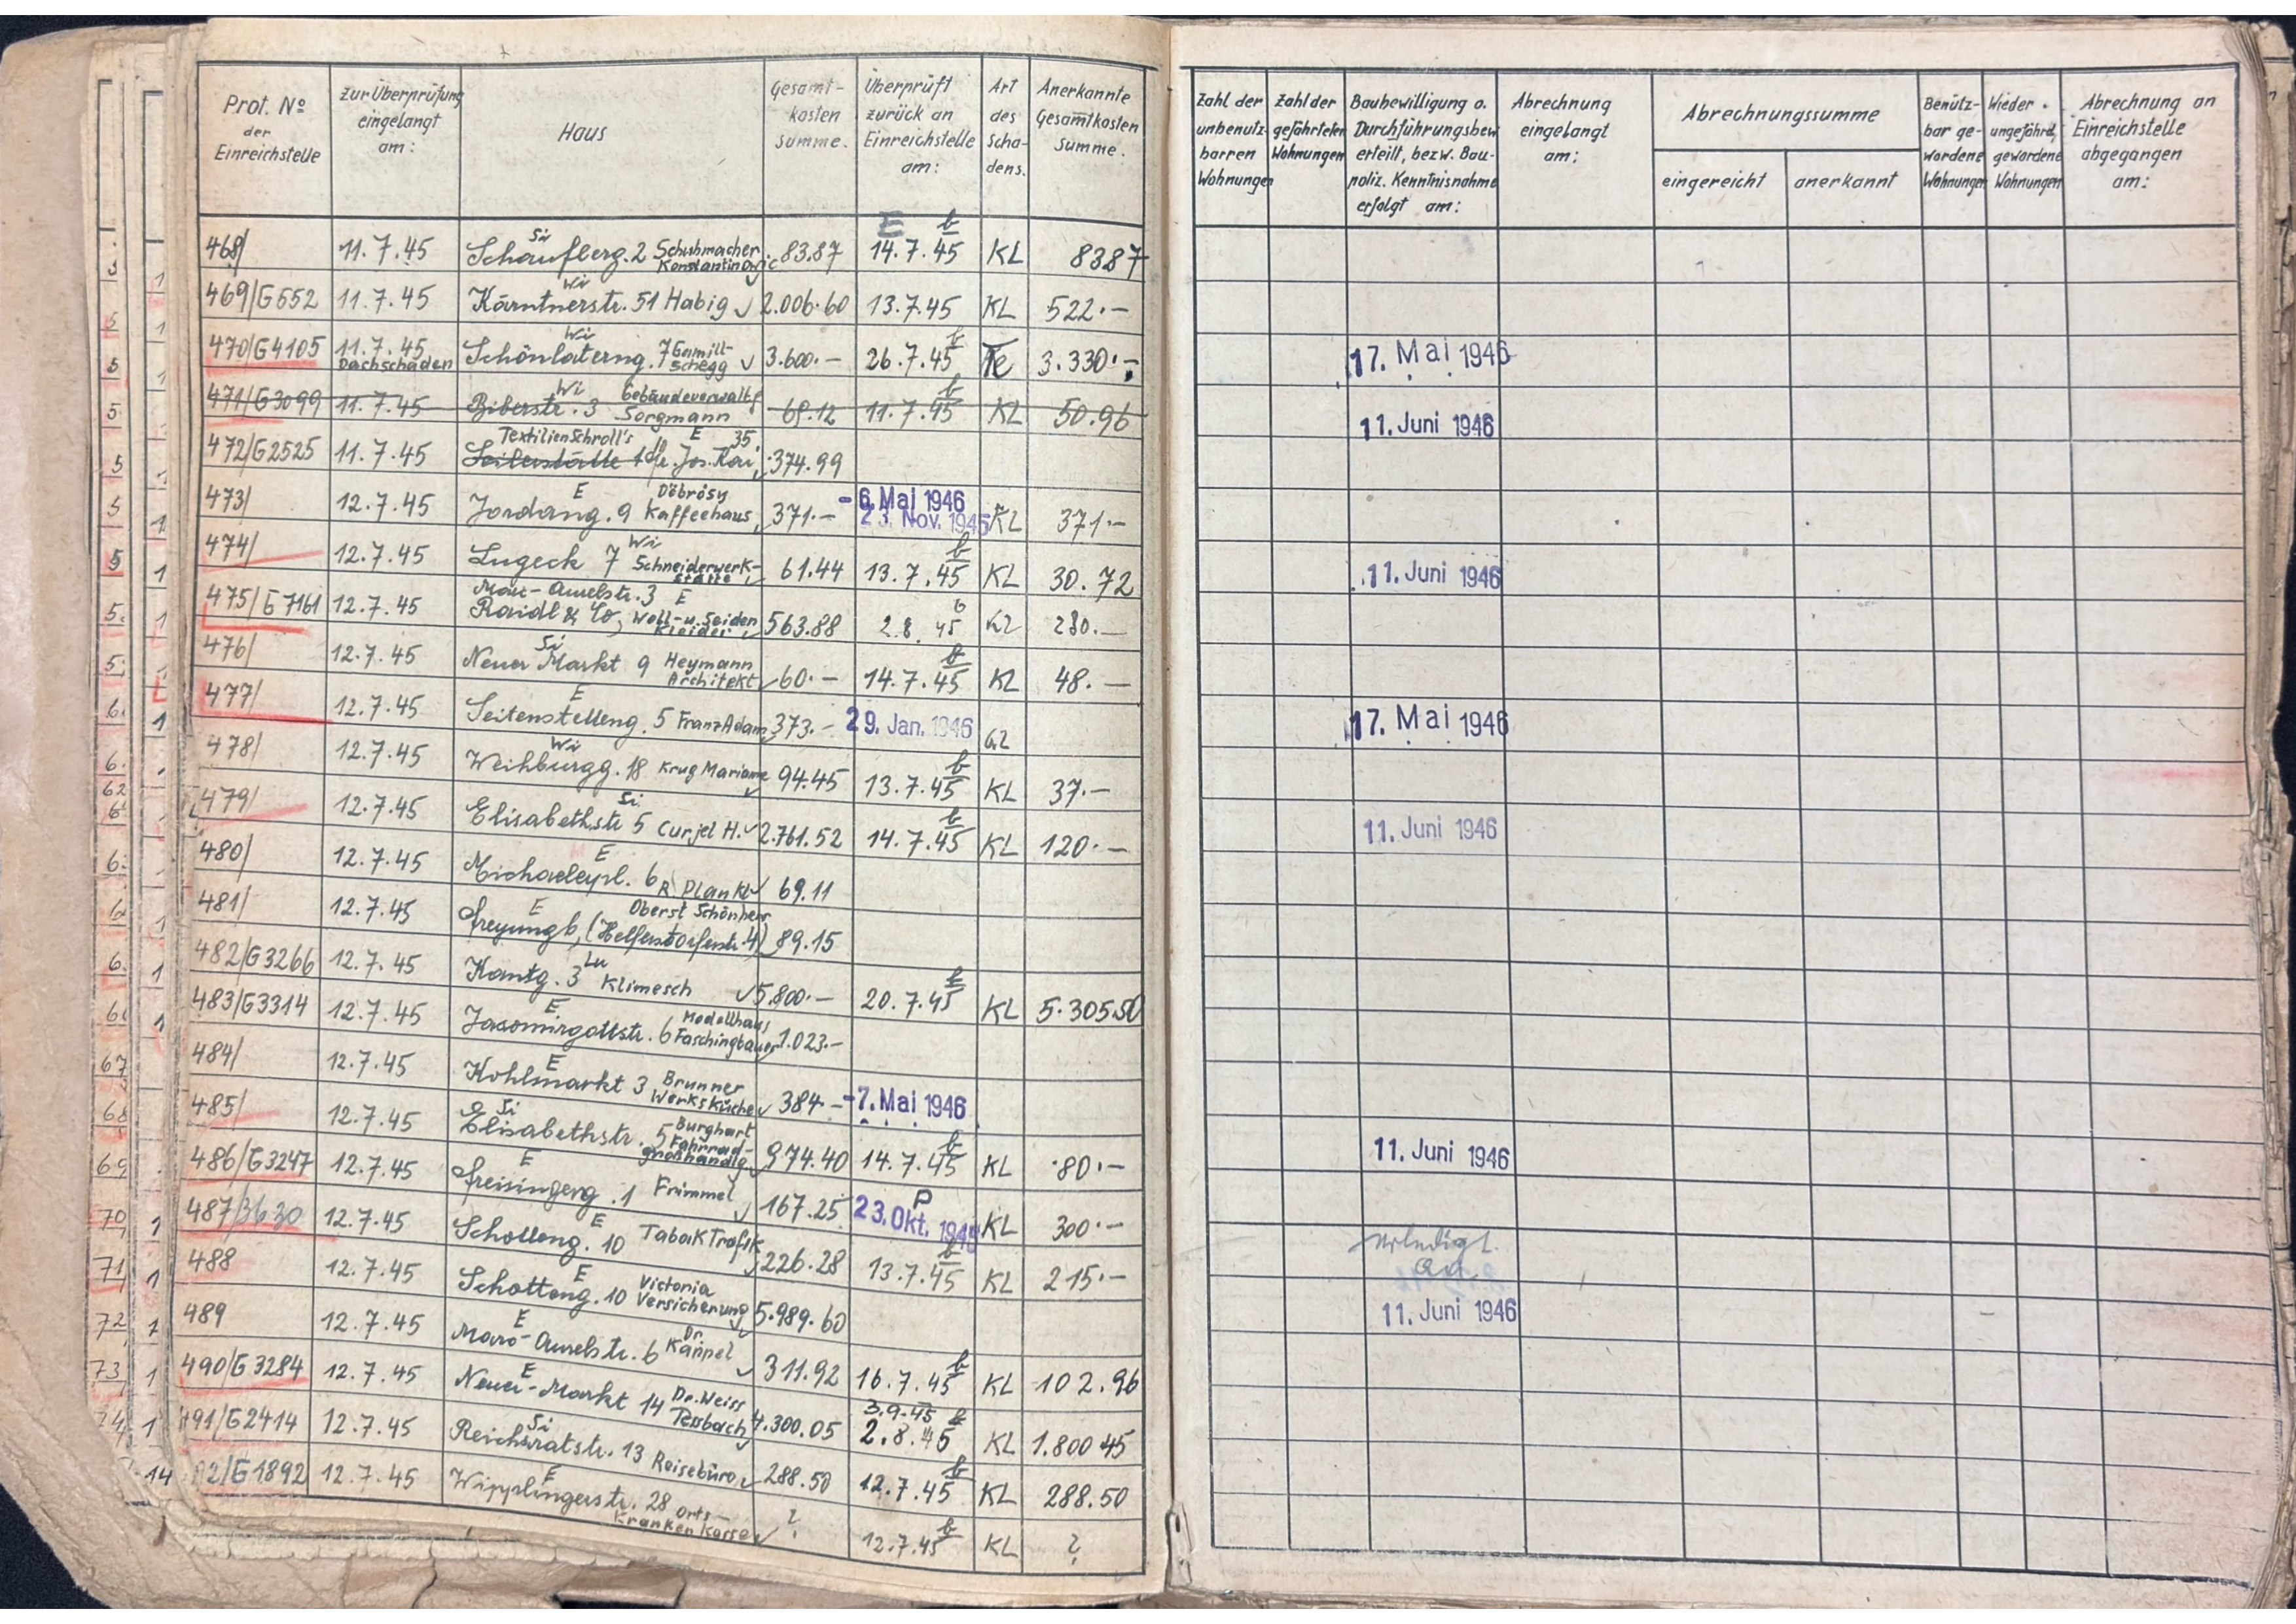 Prot. No der Einreichstelle | zur Überprüfung eingelangt am: | Haus | Gesamt-kosten summe. | Überprüft zurück an Einreichstelle am: | Art des Scha-dens. | Anerkannte Gesamtkosten Summe. | Zahl der unbenutz-barren Wohnungen | Zahl der gefährteten Wohnungen | Baubewilligung o. Durchführungsbew. erteilt, bezw. Bau-poliz. Kenntnisnahme erfolgt am: | Abrechnung eingelangt am: | Abrechnungssumme eingereicht | anerkannt | Benütz-bar ge-wordene Wohnungen | Wieder ungefährd. gewordene Wohnungen | Abrechnung an Einreichstelle abgegangen am:
468/ 11.7.45 Si Schauflerg. 2 Schuhmacher Konstantinovic 83.87 E b 14.7.45 KL 8387
469/G552 11.7.45 Wi Kärntnerstr. 51 Habig 2.006.60 13.7.45 KL 522.—
470/G4105 11.7.45 Dachschäden Wi Schönlaterng. 7 Gamill-Schegg 3.600.— b 26.7.45 Te 3.330.— 17. Mai 1946
471/G3099 11.7.45 Wi Biberstr. 3 Gebäudeverwaltg Sorgmann 69.12 b 11.7.45 KL 50.96 11. Juni 1946
472/G2525 11.7.45 Textilien Schroll's E 35. Seilerstätte Jos. Kai 374.99
473/ 12.7.45 E Jordang. 9 Döbrösy Kaffeehaus 371.— -6. Mai 1946 23. Nov. 1945 KL 371.—
474/ 12.7.45 Wi Lugeck 7 Schneiderwerk-stätte 61.44 b 13.7.45 KL 30.72 11. Juni 1946
475/G7161 12.7.45 Marc-Aurelstr. 3 E Raidl & Co, Woll-u. Seiden Kleider 563.88 b 2.8.45 KL 280.—
476/ 12.7.45 Si Neuer Markt 9 Heymann Architekt 60.— b 14.7.45 KL 48.—
477/ 12.7.45 E Seitenstetteng. 5 Franz Adam 373.— 29. Jan. 1946 17. Mai 1946
478/ 12.7.45 Wi Weihburgg. 18 Krug Mariane 94.45 b 13.7.45 KL 37.—
479/ 12.7.45 Si Elisabethstr 5 Curjel H. 2.761.52 b 14.7.45 KL 120.— 11. Juni 1946
480/ 12.7.45 E Michaelerpl. 6 R. Plankl 69.11
481/ 12.7.45 E Freyung 6, (Helferstorferstr. 4) Oberst Schönherr 89.15
482/G3266 12.7.45 Lu Kantg. 3 Klimesch 5.800.— b 20.7.45 KL 5.305.50
483/G3314 12.7.45 E Jasomirgottstr. 6 Modellhaus Faschingbauer 1.023.—
484/ 12.7.45 E Kohlmarkt 3 Brunner Werksküche 384.— -7. Mai 1946
485/ 12.7.45 Si Elisabethstr. 5 Burghart Fahrrad-großhandlg. 974.40 b 14.7.45 KL 80.— 11. Juni 1946
486/G3247 12.7.45 E Freisingerg. 1 Frimmel 167.25 P 23. Okt. 1945 KL 300.—
487/3630 12.7.45 E Schotteng. 10 Tabak Trafik 226.28 b 13.7.45 KL 215.— erledigt
488 12.7.45 E Schotteng. 10 Victoria Versicherung 5.989.60 11. Juni 1946
489 12.7.45 E Marc-Aurelstr. 6 Dr. Kappel 311.92 b 16.7.45 KL 102.96
490/G3284 12.7.45 E Neuer-Markt 14 Dr. Weiss Tessbach 4.300.05 3.9.45 b 2.8.45 KL 1.800 45
491/G2414 12.7.45 Si Reichsratstr. 13 Reisebüro 288.50 b 12.7.45 KL 288.50
92/G1892 12.7.45 E Wipplingerstr. 28 Orts-Kranken Kasse ? b 12.7.45 KL ?